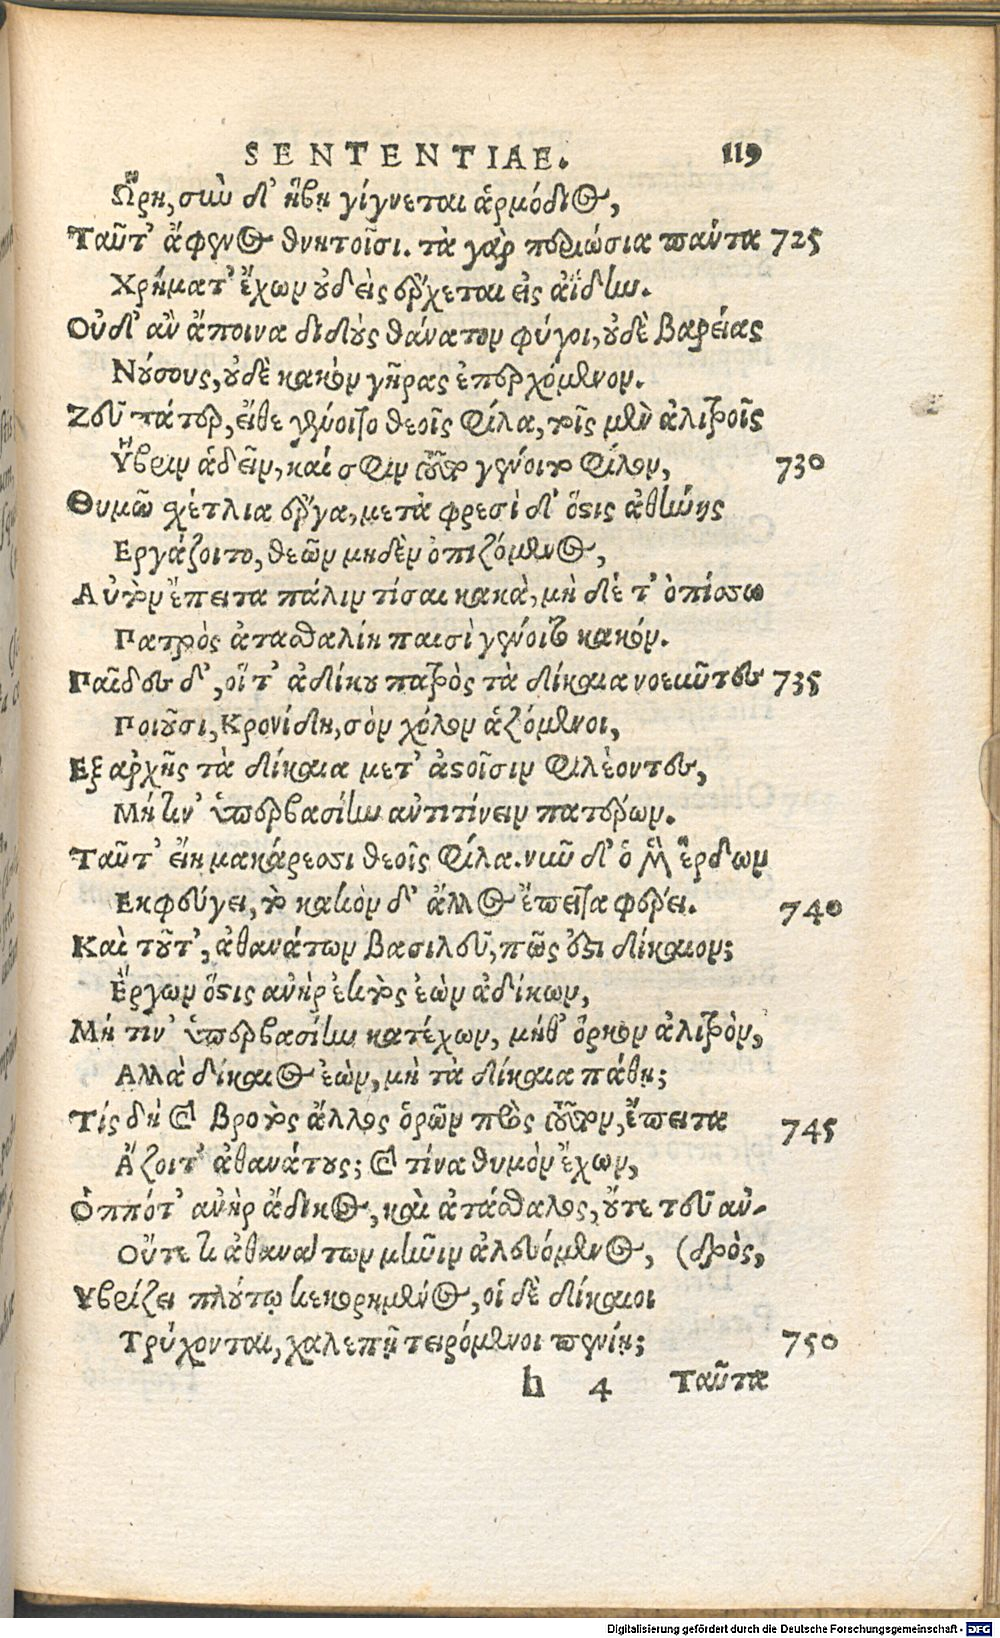 SENTENTIAE. 119
Ὥρη, σὺν δ' ἥβῃ γίγνεται ἁρμόδιος,
Ταῦτ' ἄφενος θνητοῖσι. τὰ γὰρ περιώσια πάντα 725
Χρήματ' ἔχων οὐδεὶς ἔρχεται εἰς ἀΐδην.
Οὐδ' ἂν ἄποινα διδοὺς θάνατον φύγοι, οὐδὲ βαρείας
Νούσους, οὐδὲ κακὸν γῆρας ἐπερχόμενον.
Ζεῦ πάτερ, εἴθε γένοιτο θεοῖς φίλα, τοῖς μὲν ἀλιτροῖς
Ὕβριν ἁδεῖν, καί σφιν τοῦτο γένοιτο φίλον, 730
Θυμῷ σχέτλια ἔργα, μετὰ φρεσὶ δ' ὅστις ἀθήνης
Εργάζοιτο, θεῶν μηδὲν ὀπιζόμενος,
Αὐτὸν ἔπειτα πάλιν τίσαι κακὰ, μὴ δέ τ' ὀπίσσω
Πατρὸς ἀτασθαλίη παισὶ γένοιτο κακόν.
Παῖδες δ', οἵ τ' ἀδίκου πατρὸς τὰ δίκαια νοεῦντες 735
Ποιοῦσι, Κρονίδη, σὸν χόλον ἁζόμενοι,
Εξ ἀρχῆς τὰ δίκαια μετ' ἀστοῖσιν φιλέοντες,
Μή τιν' ὑπερβασίην ἀντιτίνειν πατέρων.
Ταῦτ' εἴη μακάρεσσι θεοῖς φίλα. νῦν δ' ὁ μὲν ἔρδων
Εκφεύγει, τὸ κακὸν δ' ἄλλος ἔπειτα φέρει. 740
Καὶ τοῦτ', ἀθανάτων βασιλεῦ, πῶς ἐστι δίκαιον;
Ἔργων ὅστις ἀνὴρ ἐκτὸς ἐὼν ἀδίκων,
Μή τιν' ὑπερβασίην κατέχων, μήθ' ὅρκον ἀλιτρὸν,
Αλλὰ δίκαιος ἐὼν, μὴ τὰ δίκαια πάθῃ;
Τίς δή καὶ βροτὸς ἄλλος ὁρῶν πρὸς τοῦτον, ἔπειτα 745
Ἅζοιτ' ἀθανάτους; καὶ τίνα θυμὸν ἔχων,
Ὁππότ' ἀνὴρ ἄδικος, καὶ ἀτάσθαλος, οὔτε τευ ἀν-
Οὔτε τι ἀθανάτων μῆνιν ἀλευόμενος, (δρὸς,
Υβρίζει πλούτῳ κεκορημένος, οἱ δὲ δίκαιοι
Τρύχονται, χαλεπῇ τειρόμενοι πενίῃ; 750
h 4 Ταῦτα
Digitalisierung gefördert durch die Deutsche Forschungsgemeinschaft - DFG